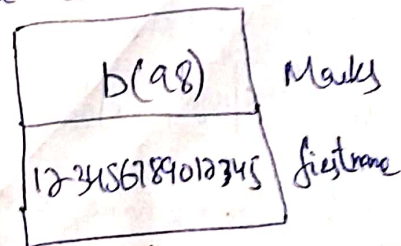 b(98) Marks
123456789012345 firstname